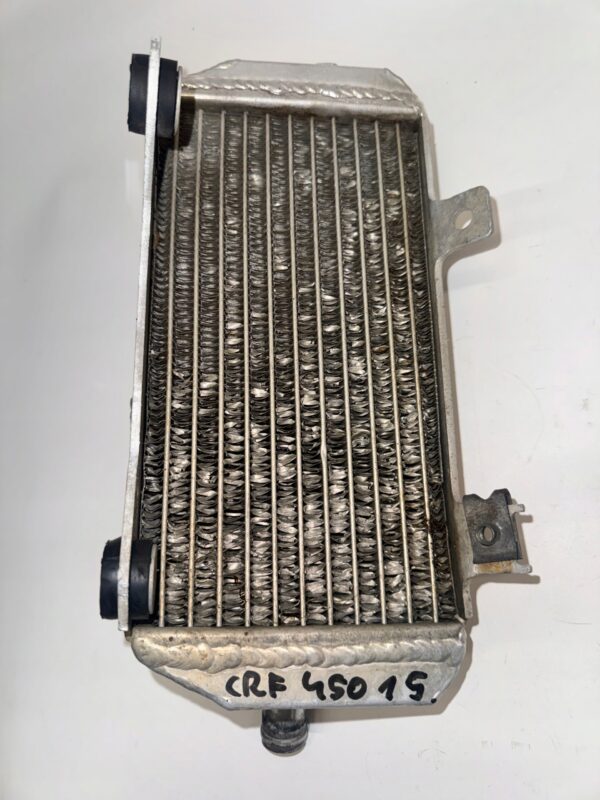 CRF 450 15